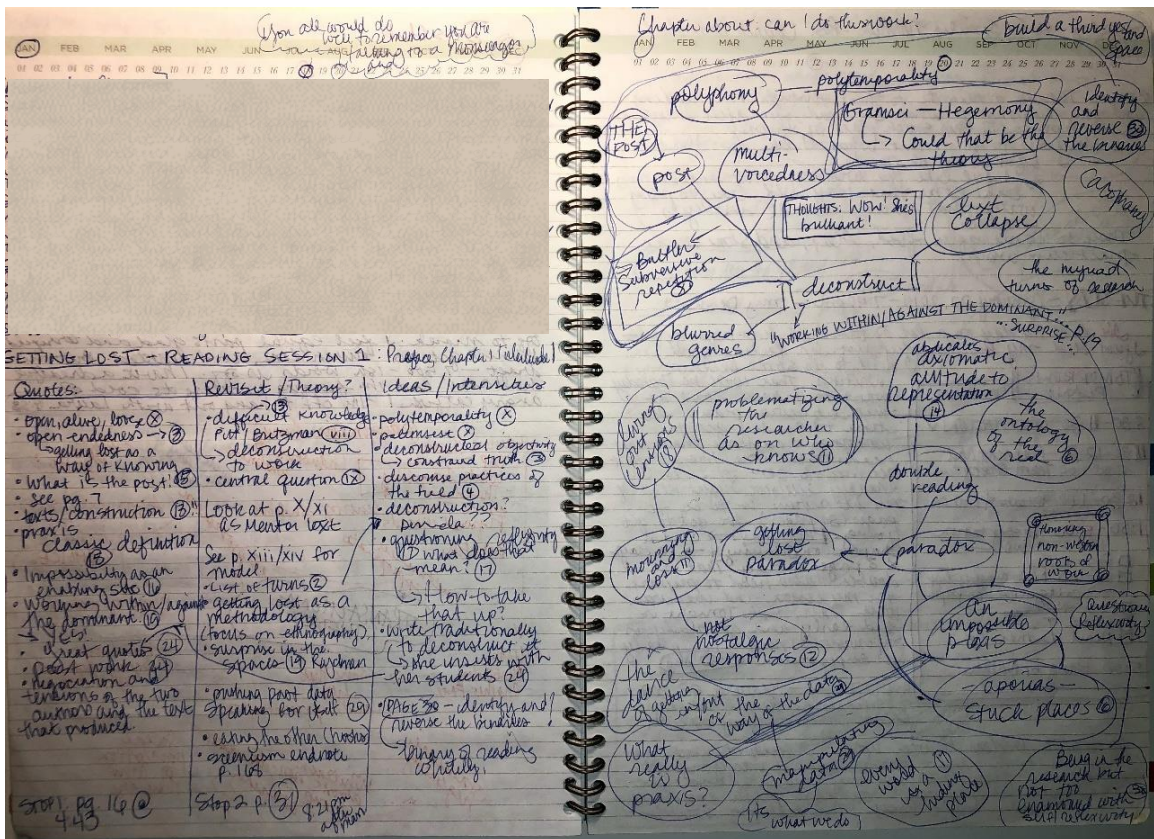 you all would do
well to remember you are
talking to a
JAN FEB MAR APR MAY JUN AUG
01 02 03 04 05 06 07 08 09 10 11 12 13 14 15 16 17
GETTING LOST - READING SESSION 1: Preface, Chapter 1,
Quotes:
• open, alive, loss X
• open-endedness → 3
getting lost as a
way of knowing
• What is the post? 5
• See pg. 7
• texts/construction 13
• praxis
classic definition
15
• Impossibility as an
enabling site 16
• Working within/against
the dominant 19
→ YES!
• Great quotes 24
• Doest work 24
• negotiation and
tensions of the two
authors and the text
that produced
Stop 1 pg. 16
4:43
Revisit/Theory?
• difficult knowledge 13
Pitt/Britzman viii
deconstruction
to work
• central question ix
Look at p. X/xi
as Mentor text
See p. xiii/xiv for
model
• List of turns 2
• getting lost as a
methodology
(focus on ethnography)
• surprise in the
spaces 19 Rajchman
• pushing past data
speaking for itself 29
• eating the other (hooks)
• endnote
p. 168
Stop 2 p. 31
8:21 pm
after
Ideas/Intensities
• polytemporality X
• palimpsest X
• deconstructed objectivity
→ constraind truth 3
• discourse practices of
the field 4
• deconstruction?
• questioning reflexivity
what does that
mean? 17
→ How to take
that up?
• write traditionally
to deconstruct it
she insists with
her students 24
• PAGE 30 - identify and
reverse the binaries
→ binary of reading
Chapter about: can I do this work?
build a third yes/and
space
JAN FEB MAR APR MAY JUN JUL AUG SEP OCT NOV DEC
01 02 03 04 05 06 07 08 09 10 11 12 13 14 15 16 17 18 19 20 21 22 23 24 25 26 27 28 29 30
polyphony
polytemporality
Gramsci — Hegemony
→ Could that be the
theory
Identify
and
reverse 30
the binaries
THE
POST
post
multi-
voicedness
Cacophany
THOUGHTS: WOW! She's
brilliant!
text
collapse
Butler
Subversive
repetition
deconstruct
the myriad
turns of research
blurred
genres
"WORKING WITHIN/AGAINST THE DOMINANT"... P.19
..."SURPRISE"
abdicates
axiomatic
attitude to
representation
14
problematizing
the
researcher
as on who
knows 11
the
ontology
of the
real 6
double
reading
mourning
and
loss 11
getting
lost
paradox
paradox
Honoring
non-western
roots of
work
not
nostalgic
responses 12
an
impossible
praxis
Questioning
Reflexivity
the
dance
of getting
in/out
of the
way of the data 29
- aporias -
stuck places 6
What
really
is
praxis?
manipulating
data
its
what we do
every
word
is a
hiding
place
Being in the
research but
not too
enamored with
self reflexivity